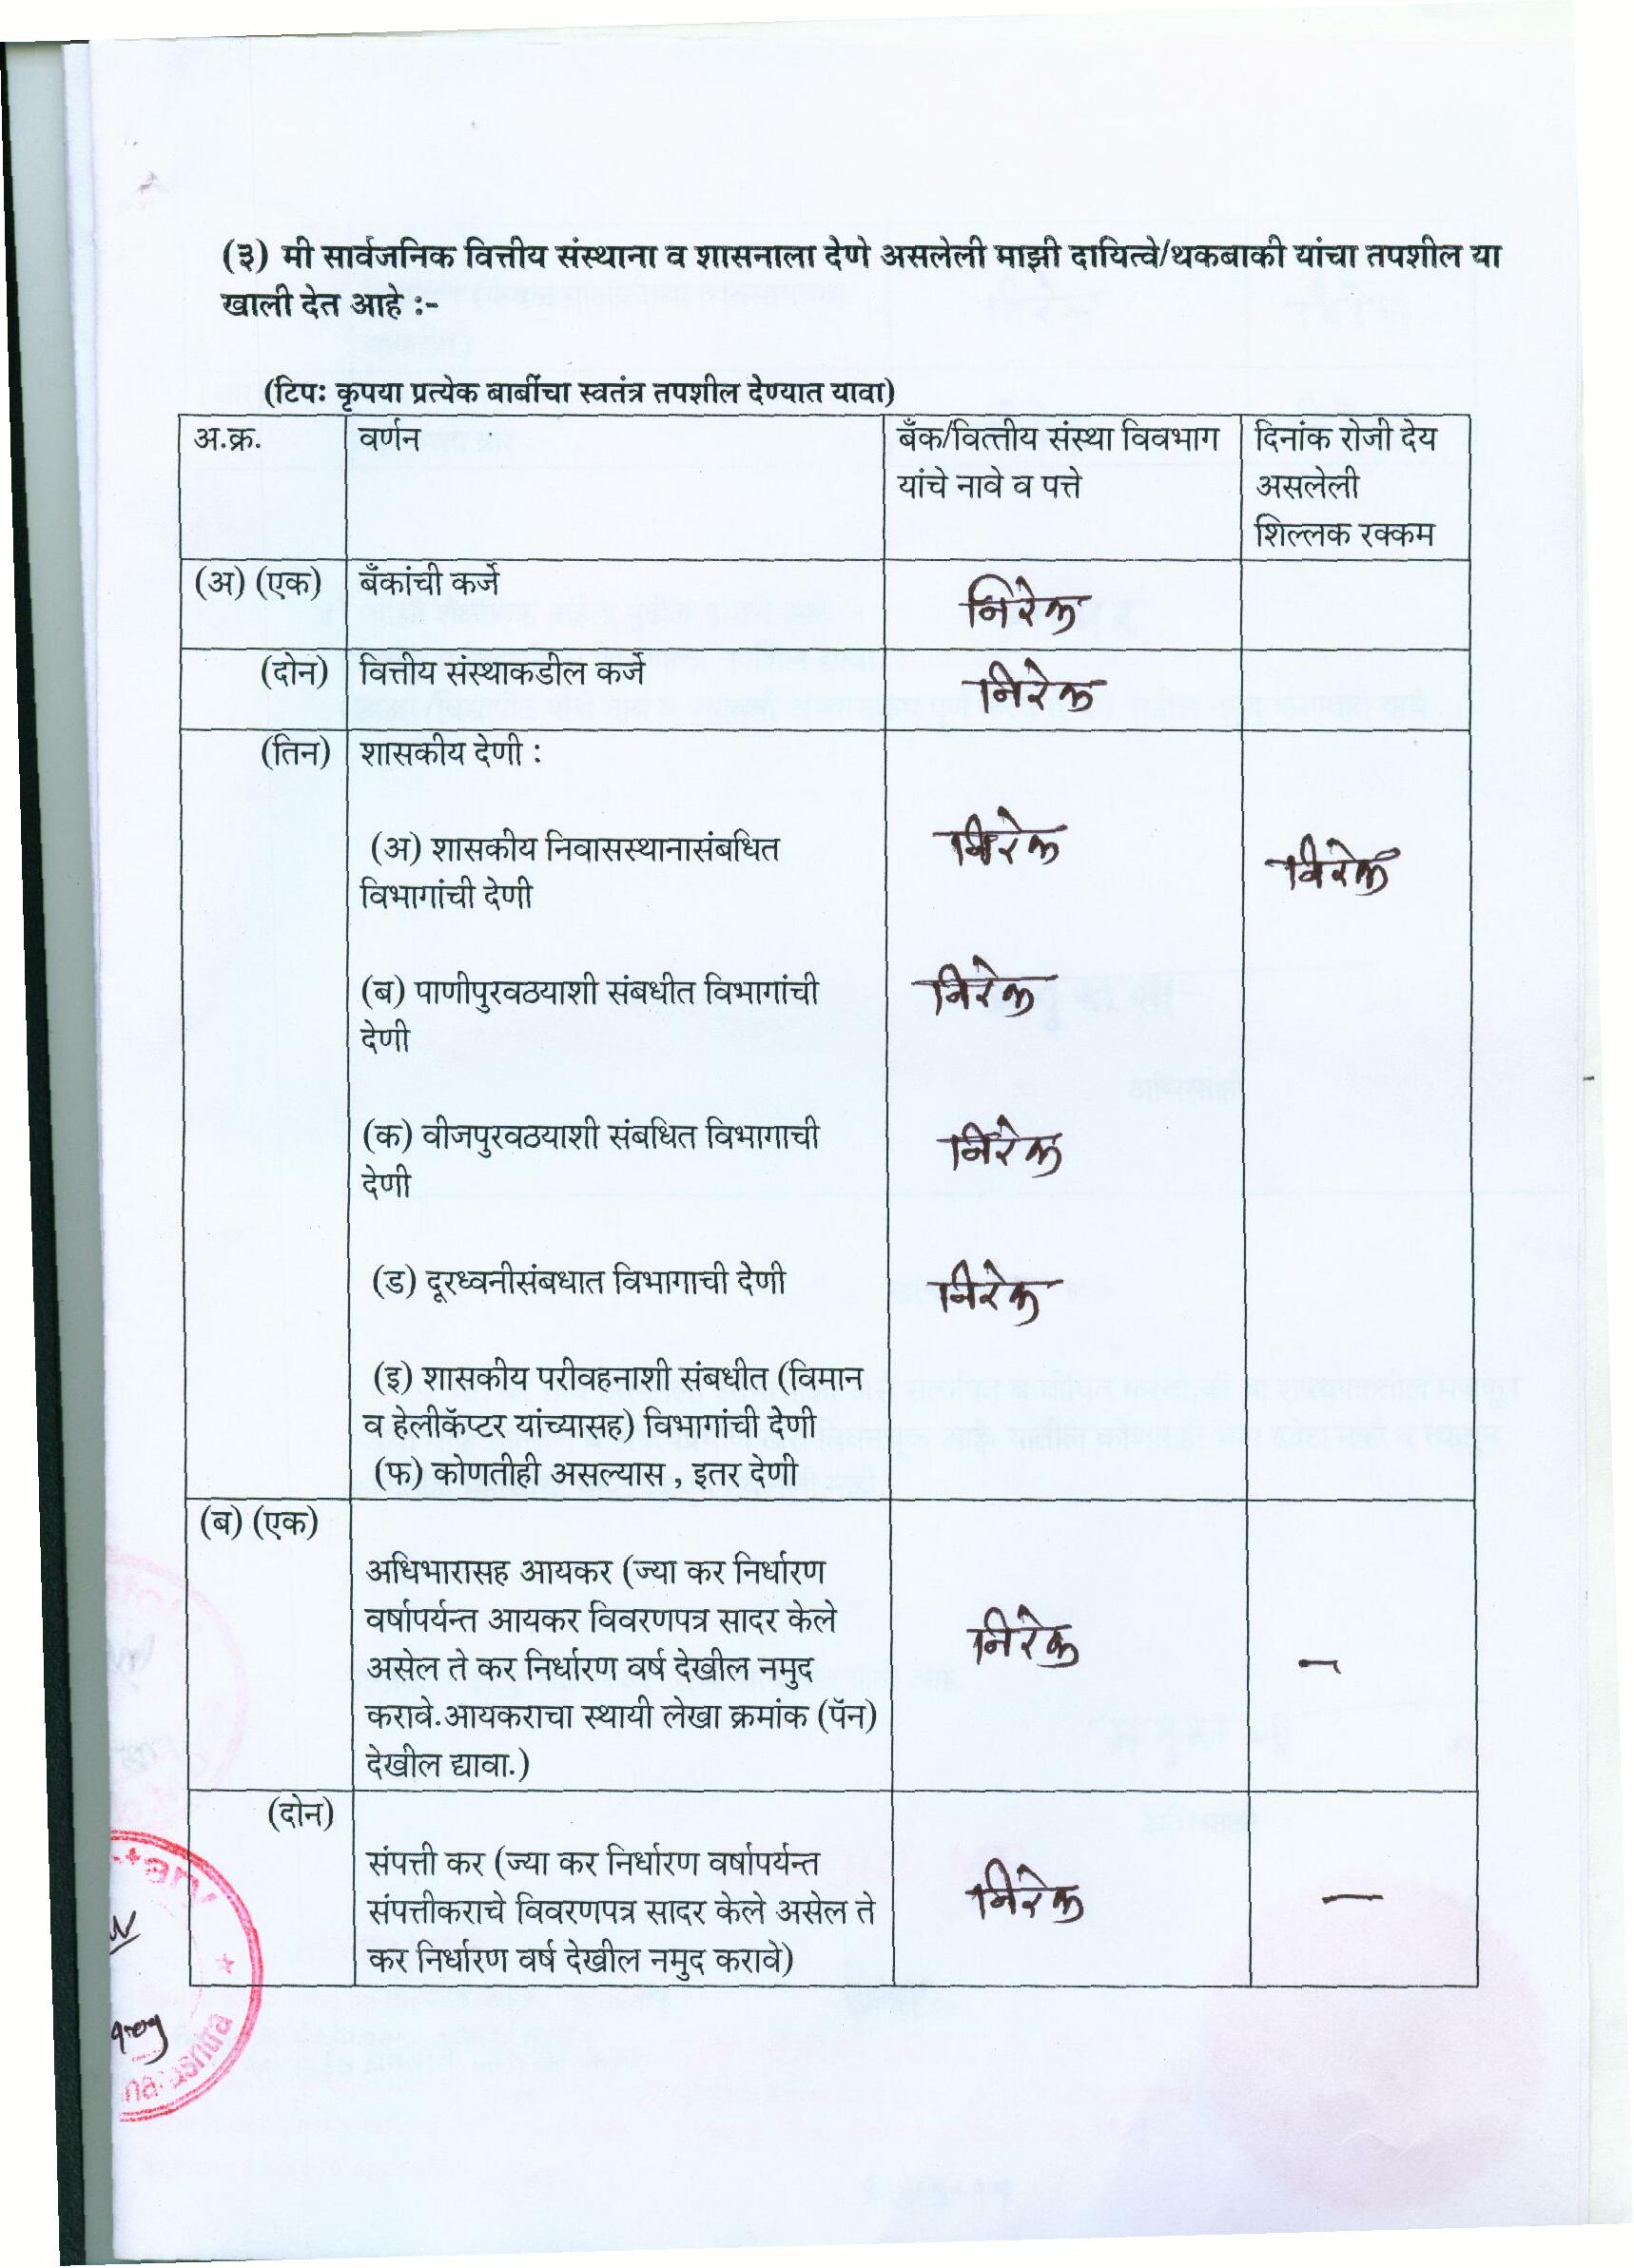 (३) मी सार्वजनिक वित्तीय संस्थाना व शासनाला देणे असलेली माझी दायित्वे/थकबाकी यांचा तपशील या
खाली देत आहे :-
(टिपः कृपया प्रत्येक बाबींचा स्वतंत्र तपशील देण्यात यावा)
अ.क्र. वर्णन बँक/वित्तीय संस्था विवभाग दिनांक रोजी देय
यांचे नावे व पत्ते असलेली
शिल्लक रक्कम
(अ) (एक) बँकांची कर्जे निरंक
(दोन) वित्तीय संस्थाकडील कर्जे निरंक
(तिन) शासकीय देणी :
(अ) शासकीय निवासस्थानासंबधित निरंक निरंक
विभागांची देणी
(ब) पाणीपुरवठयाशी संबधीत विभागांची निरंक
देणी
(क) वीजपुरवठयाशी संबधित विभागाची निरंक
देणी
(ड) दूरध्वनीसंबधात विभागाची देणी निरंक
(इ) शासकीय परीवहनाशी संबधीत (विमान
व हेलीकॅप्टर यांच्यासह) विभागांची देणी
(फ) कोणतीही असल्यास , इतर देणी
(ब) (एक)
अधिभारासह आयकर (ज्या कर निर्धारण
वर्षापर्यन्त आयकर विवरणपत्र सादर केले निरंक
असेल ते कर निर्धारण वर्ष देखील नमुद –
करावे.आयकराचा स्थायी लेखा क्रमांक (पॅन)
देखील द्यावा.)
(दोन)
संपत्ती कर (ज्या कर निर्धारण वर्षापर्यन्त
संपत्तीकराचे विवरणपत्र सादर केले असेल ते निरंक —
कर निर्धारण वर्ष देखील नमुद करावे)